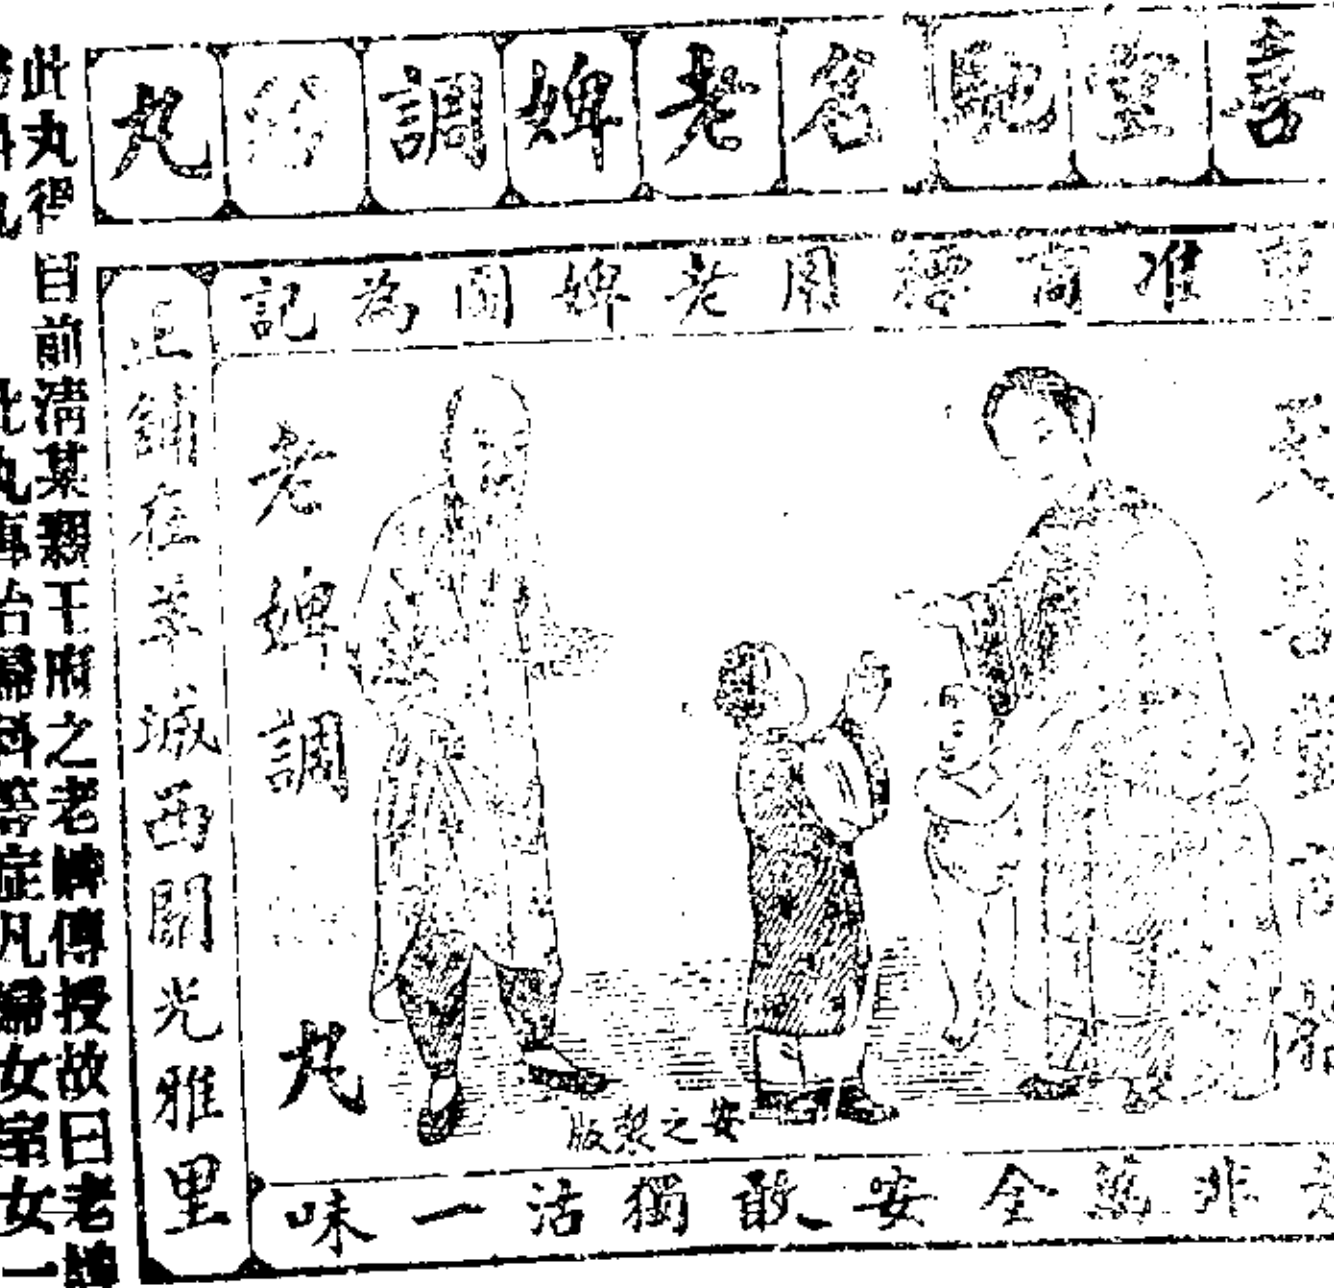 喜堂馳名老婢調經丸
准商標用老婢圖為記
天喜堂
老婢調經丸
正鋪在羊城西關光雅里
安之製版
非萬全安敢獨活一味
此丸得
目前清某親王府之老婢傳授故曰老婢
此丸專治婦科等症凡婦女室女一